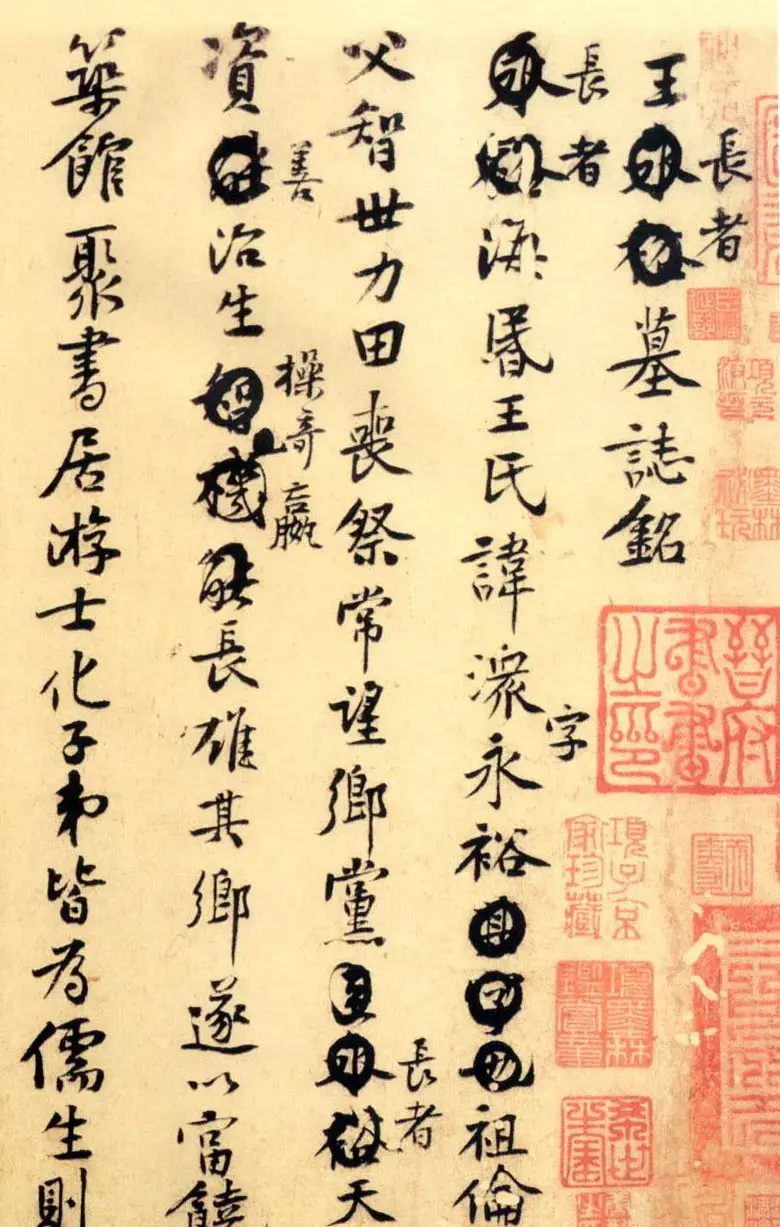 王長者墓誌銘
長者海昬王氏諱潀字永裕祖倫
父智世力田喪祭常望鄉黨長者天
資善治生操奇贏長雄其鄉遂以富饒
築館聚書居游士化子弟皆為儒生則
晉府書畫之印
項子京家珍藏